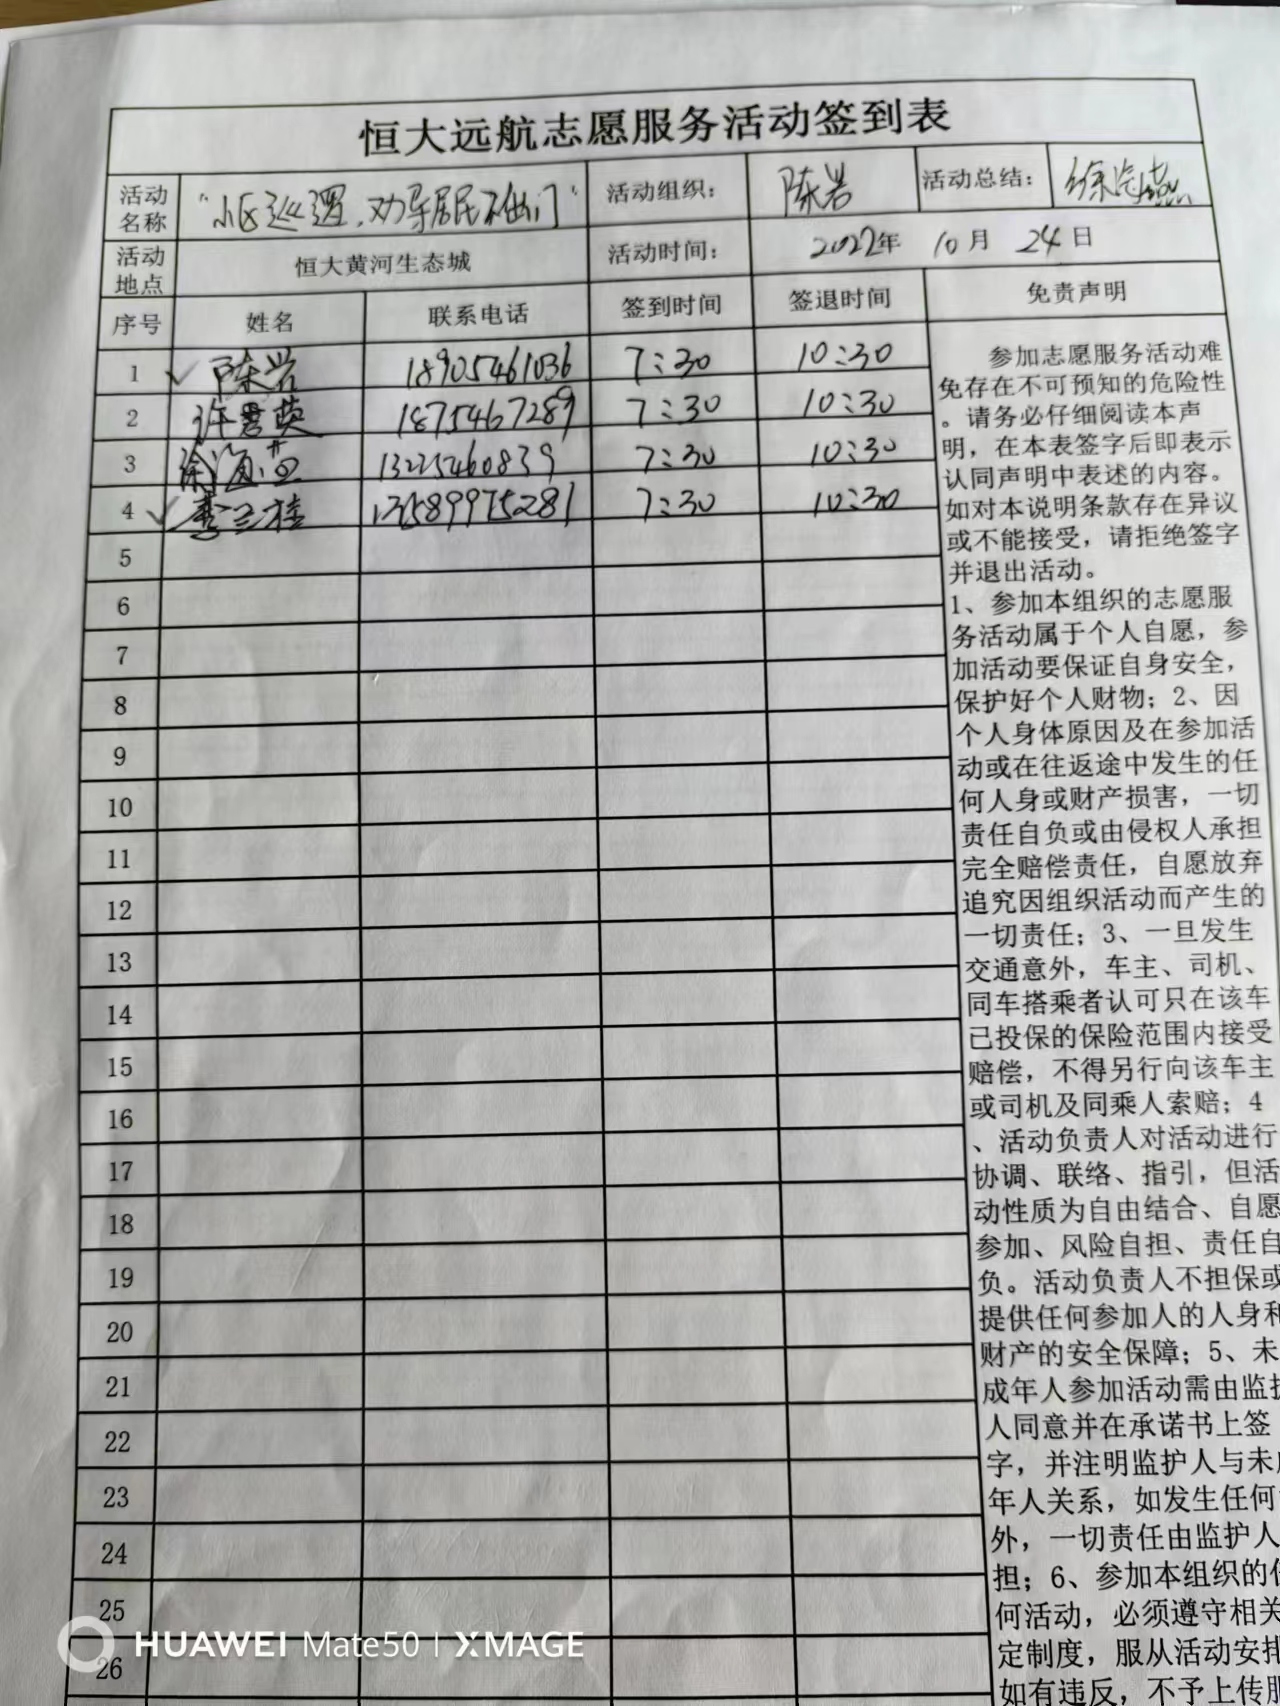 恒大远航志愿服务活动签到表
活动名称 "小区巡逻,劝导居民不出门" 活动组织: 陈岩 活动总结:
活动地点 恒大黄河生态城 活动时间: 2022年 10月 24日
序号 姓名 联系电话 签到时间 签退时间 免责声明
1 ✓ 陈岩 18905461036 7:30 10:30
2 许君英 1875467289 7:30 10:30
3 13225460839 7:30 10:30
4 ✓ 李兰桂 13589975281 7:30 10:30
5
6
7
8
9
10
11
12
13
14
15
16
17
18
19
20
21
22
23
24
25
26
参加志愿服务活动难
免存在不可预知的危险性
。请务必仔细阅读本声
明,在本表签字后即表示
认同声明中表述的内容。
如对本说明条款存在异议
或不能接受,请拒绝签字
并退出活动。
1、参加本组织的志愿服
务活动属于个人自愿,参
加活动要保证自身安全,
保护好个人财物;2、因
个人身体原因及在参加活
动或在往返途中发生的任
何人身或财产损害,一切
责任自负或由侵权人承担
完全赔偿责任,自愿放弃
追究因组织活动而产生的
一切责任;3、一旦发生
交通意外,车主、司机、
同车搭乘者认可只在该车
已投保的保险范围内接受
赔偿,不得另行向该车主
或司机及同乘人索赔;4
、活动负责人对活动进行
协调、联络、指引,但活
动性质为自由结合、自愿
参加、风险自担、责任自
负。活动负责人不担保或
提供任何参加人的人身和
财产的安全保障;5、未
成年人参加活动需由监护
人同意并在承诺书上签
字,并注明监护人与未
年人关系,如发生任何
外,一切责任由监护人
担;6、参加本组织的
何活动,必须遵守相关
定制度,服从活动安排
如有违反,不予上传
HUAWEI Mate50 | XMAGE